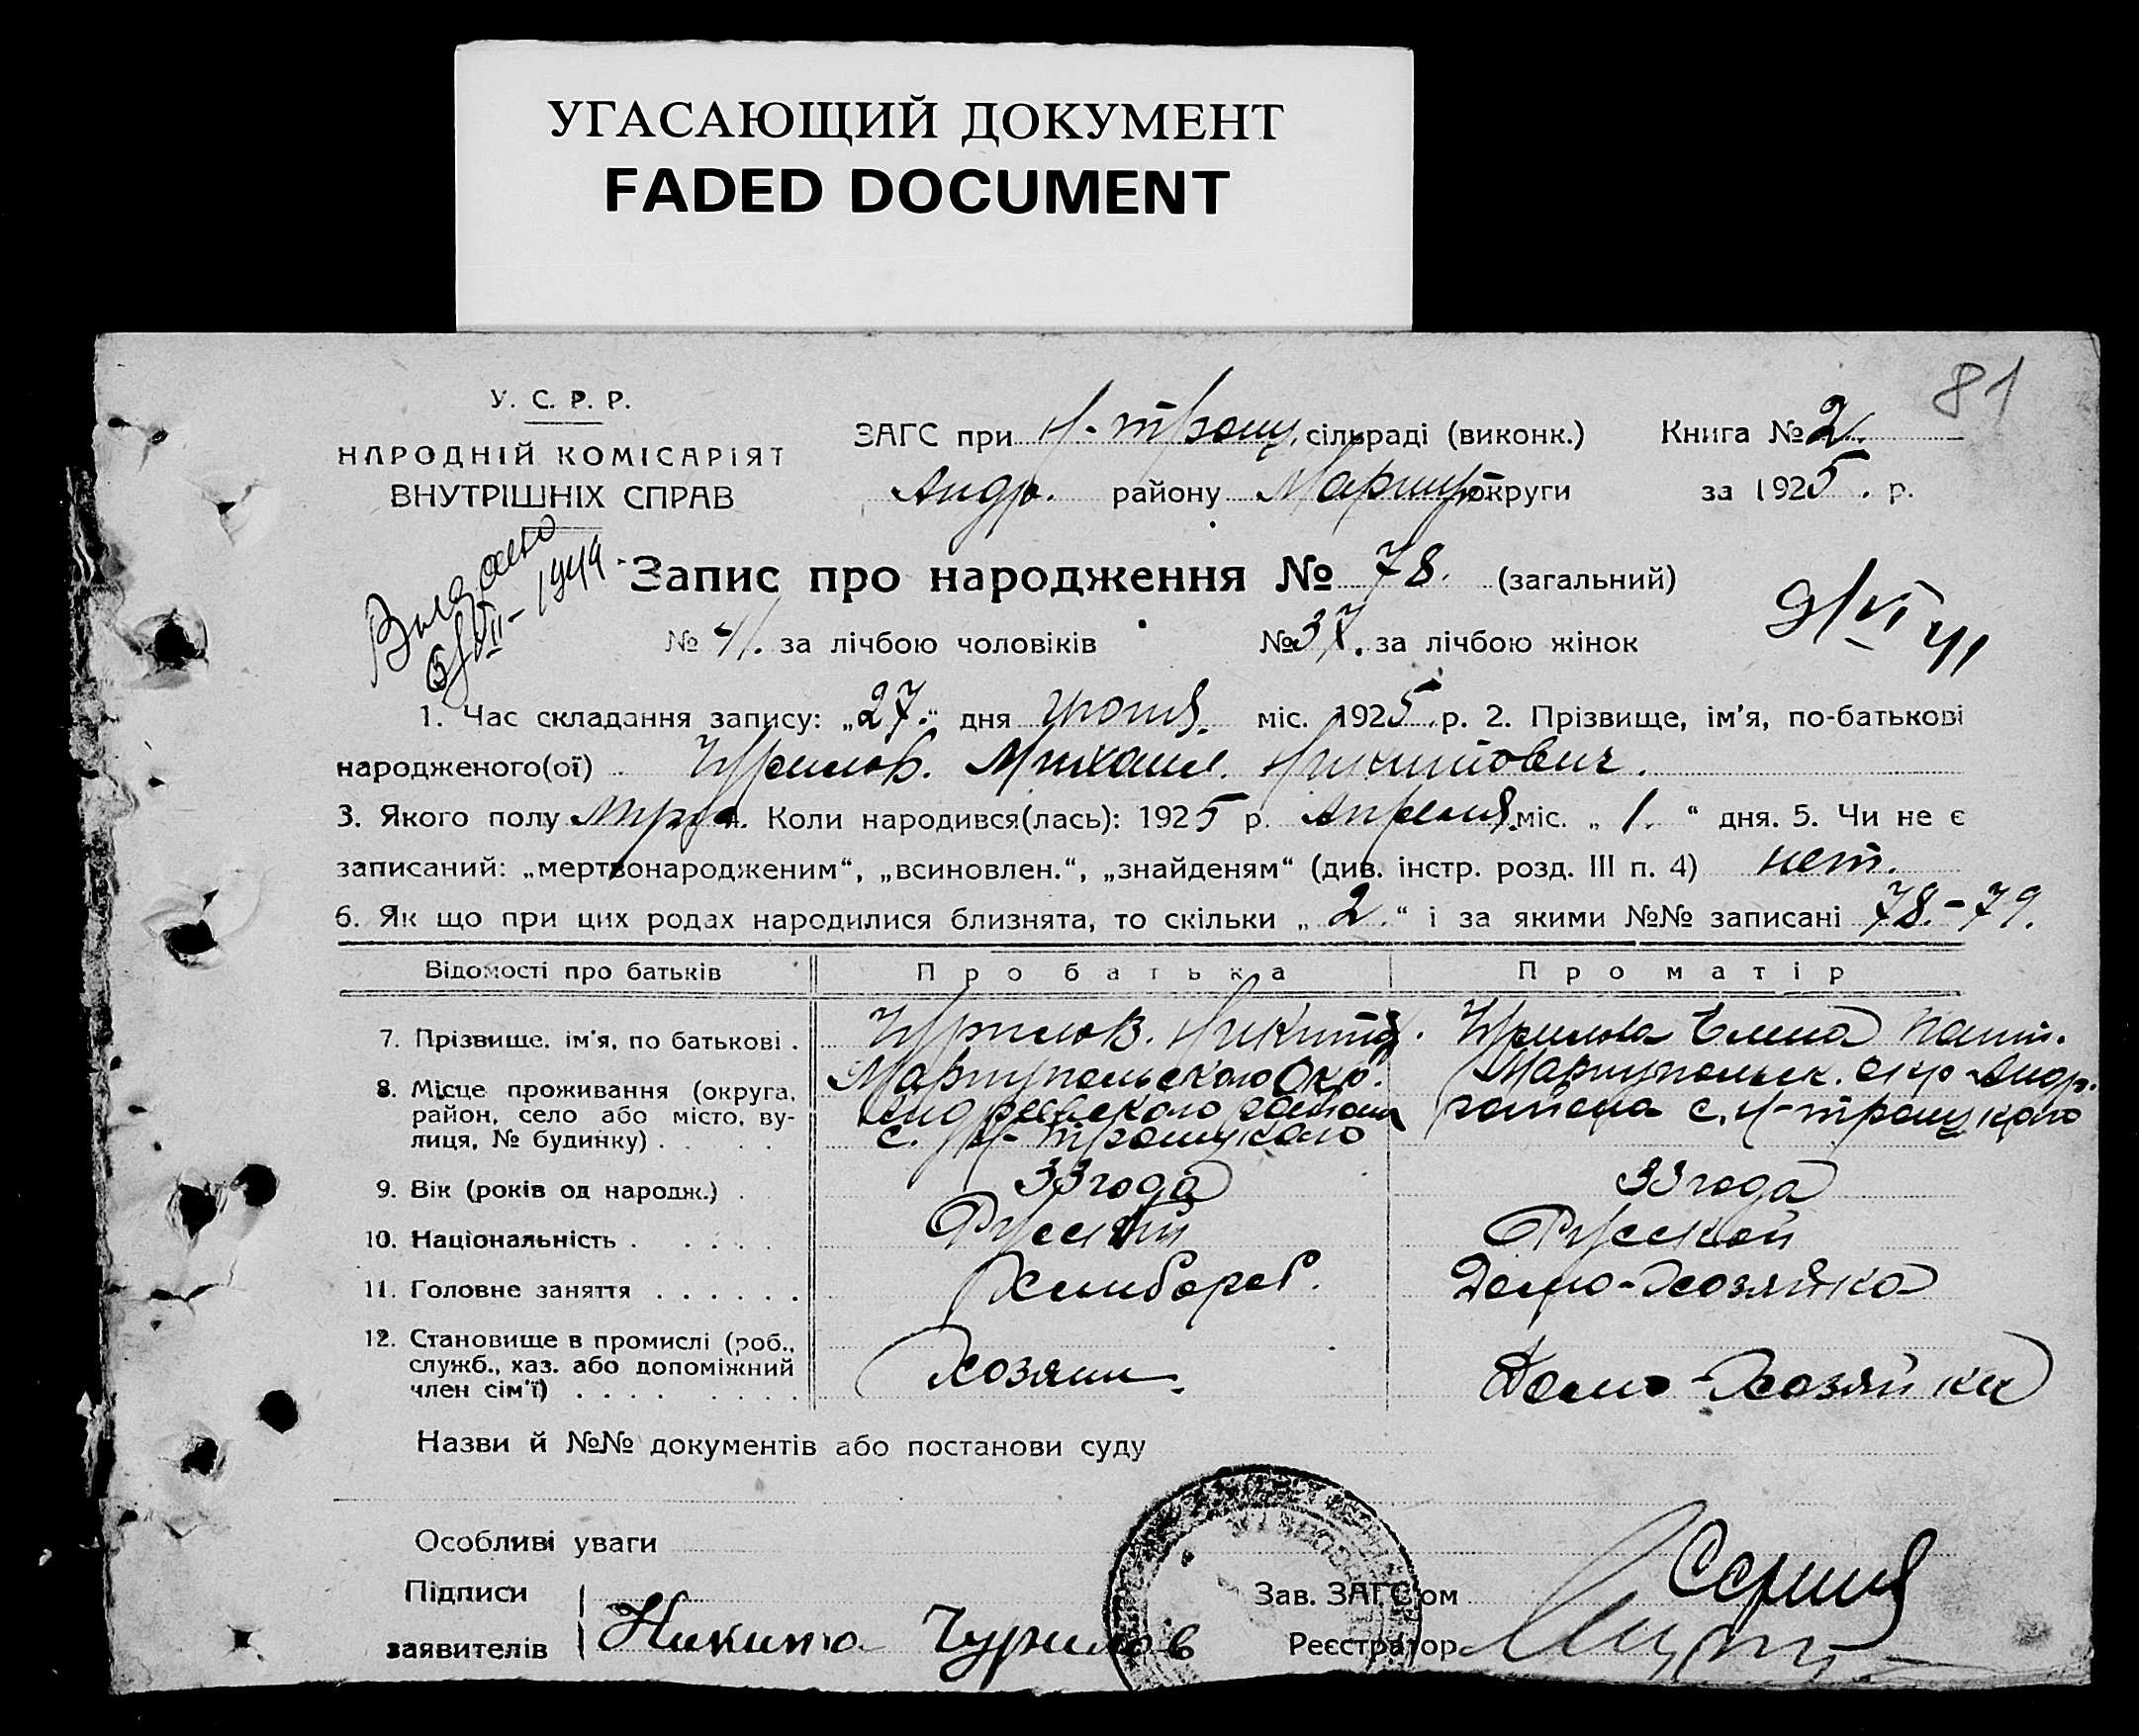 УГАСАЮЩИЙ ДОКУМЕНТ
FADED DOCUMENT
81
У. С. Р. Р.
НАРОДНІЙ КОМІСАРІЯТ
ВНУТРІШНІХ СПРАВ
ЗАГС при Н-троиц. сільраді (виконк.) Книга № 2.
Андр. району Мариуп. округи за 1925. р.
Выдано
1944
Запис про народження № 78. (загальний)
9/VI 41
№ 41. за лічбою чоловіків № 37. за лічбою жінок
1. Час складання запису: „27.“ дня июня. міс. 1925 р. 2. Прізвище, ім'я, по-батькові
народженого(ої) Чурилов. Михаил. Никитович.
3. Якого полу муж. Коли народився(лась): 1925 р. Апреля. міс. „ 1. “ дня. 5. Чи не є
записаний: „мертвонародженим“, „всиновлен.“, „знайденям“ (див. інстр. розд. III п. 4) нет.
6. Як що при цих родах народилися близнята, то скільки „ 2. “ і за якими №№ записані 78.-79.
Відомості про батьків Про батька Про матір
7. Прізвище, ім'я, по батькові . Чурилов. Никита. Чурилова Елена
8. Місце проживання (округа, район, село або місто, вулиця, № будинку) . Мариупольского Окр. Андреевского района с. Н-троицкого Мариупольск. окр Андр. района с. Н-троицкого
9. Вік (років од народж.) . 33 года 33 года
10. Національність . . . . . Русский Русской
11. Головне заняття . . . . . . Хлебороб. Домо-Хозяйка
12. Становище в промислі (роб., служб., хаз. або допоміжний член сім'ї) . . . . . . . . Хозяин. Домо-Хозяйка
Назви й №№ документів або постанови суду
Особливі уваги
Підписи
заявителів Никита Чурилов
Зав. ЗАГС'ом
Реєстратор